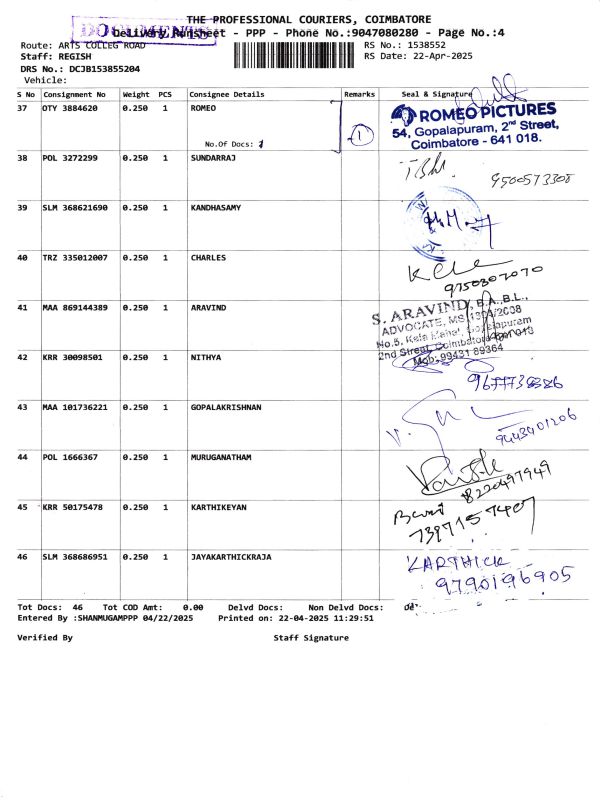 THE PROFESSIONAL COURIERS, COIMBATORE
DOCUMENTS
Delivery Runsheet - PPP - Phone No.:9047080280 - Page No.:4
Route: ARTS COLLEG ROAD
RS No.: 1538552
Staff: REGISH
RS Date: 22-Apr-2025
DRS No.: DCJB153855204
Vehicle:
S No Consignment No Weight PCS Consignee Details Remarks Seal & Signature
37 OTY 3884620 0.250 1 ROMEO
No.Of Docs: 1
1
ROMEO PICTURES
54, Gopalapuram, 2nd Street,
Coimbatore - 641 018.
38 POL 3272299 0.250 1 SUNDARRAJ
9500573308
39 SLM 368621690 0.250 1 KANDHASAMY
40 TRZ 335012007 0.250 1 CHARLES
9750307070
41 MAA 869144389 0.250 1 ARAVIND
S. ARAVIND, B.A.,B.L.,
ADVOCATE, MS
No.5, Kala Mahal, Gopalapuram
2nd Street, Coimbatore
Mob: 99431 89364
42 KRR 30098501 0.250 1 NITHYA
43 MAA 101736221 0.250 1 GOPALAKRISHNAN
9443401206
44 POL 1666367 0.250 1 MURUGANATHAM
8220497949
45 KRR 50175478 0.250 1 KARTHIKEYAN
7397157407
46 SLM 368686951 0.250 1 JAYAKARTHICKRAJA
KARTHICK
9790196905
Tot Docs: 46 Tot COD Amt: 0.00 Delvd Docs: Non Delvd Docs:
Entered By :SHANMUGAMPPP 04/22/2025 Printed on: 22-04-2025 11:29:51
Verified By Staff Signature